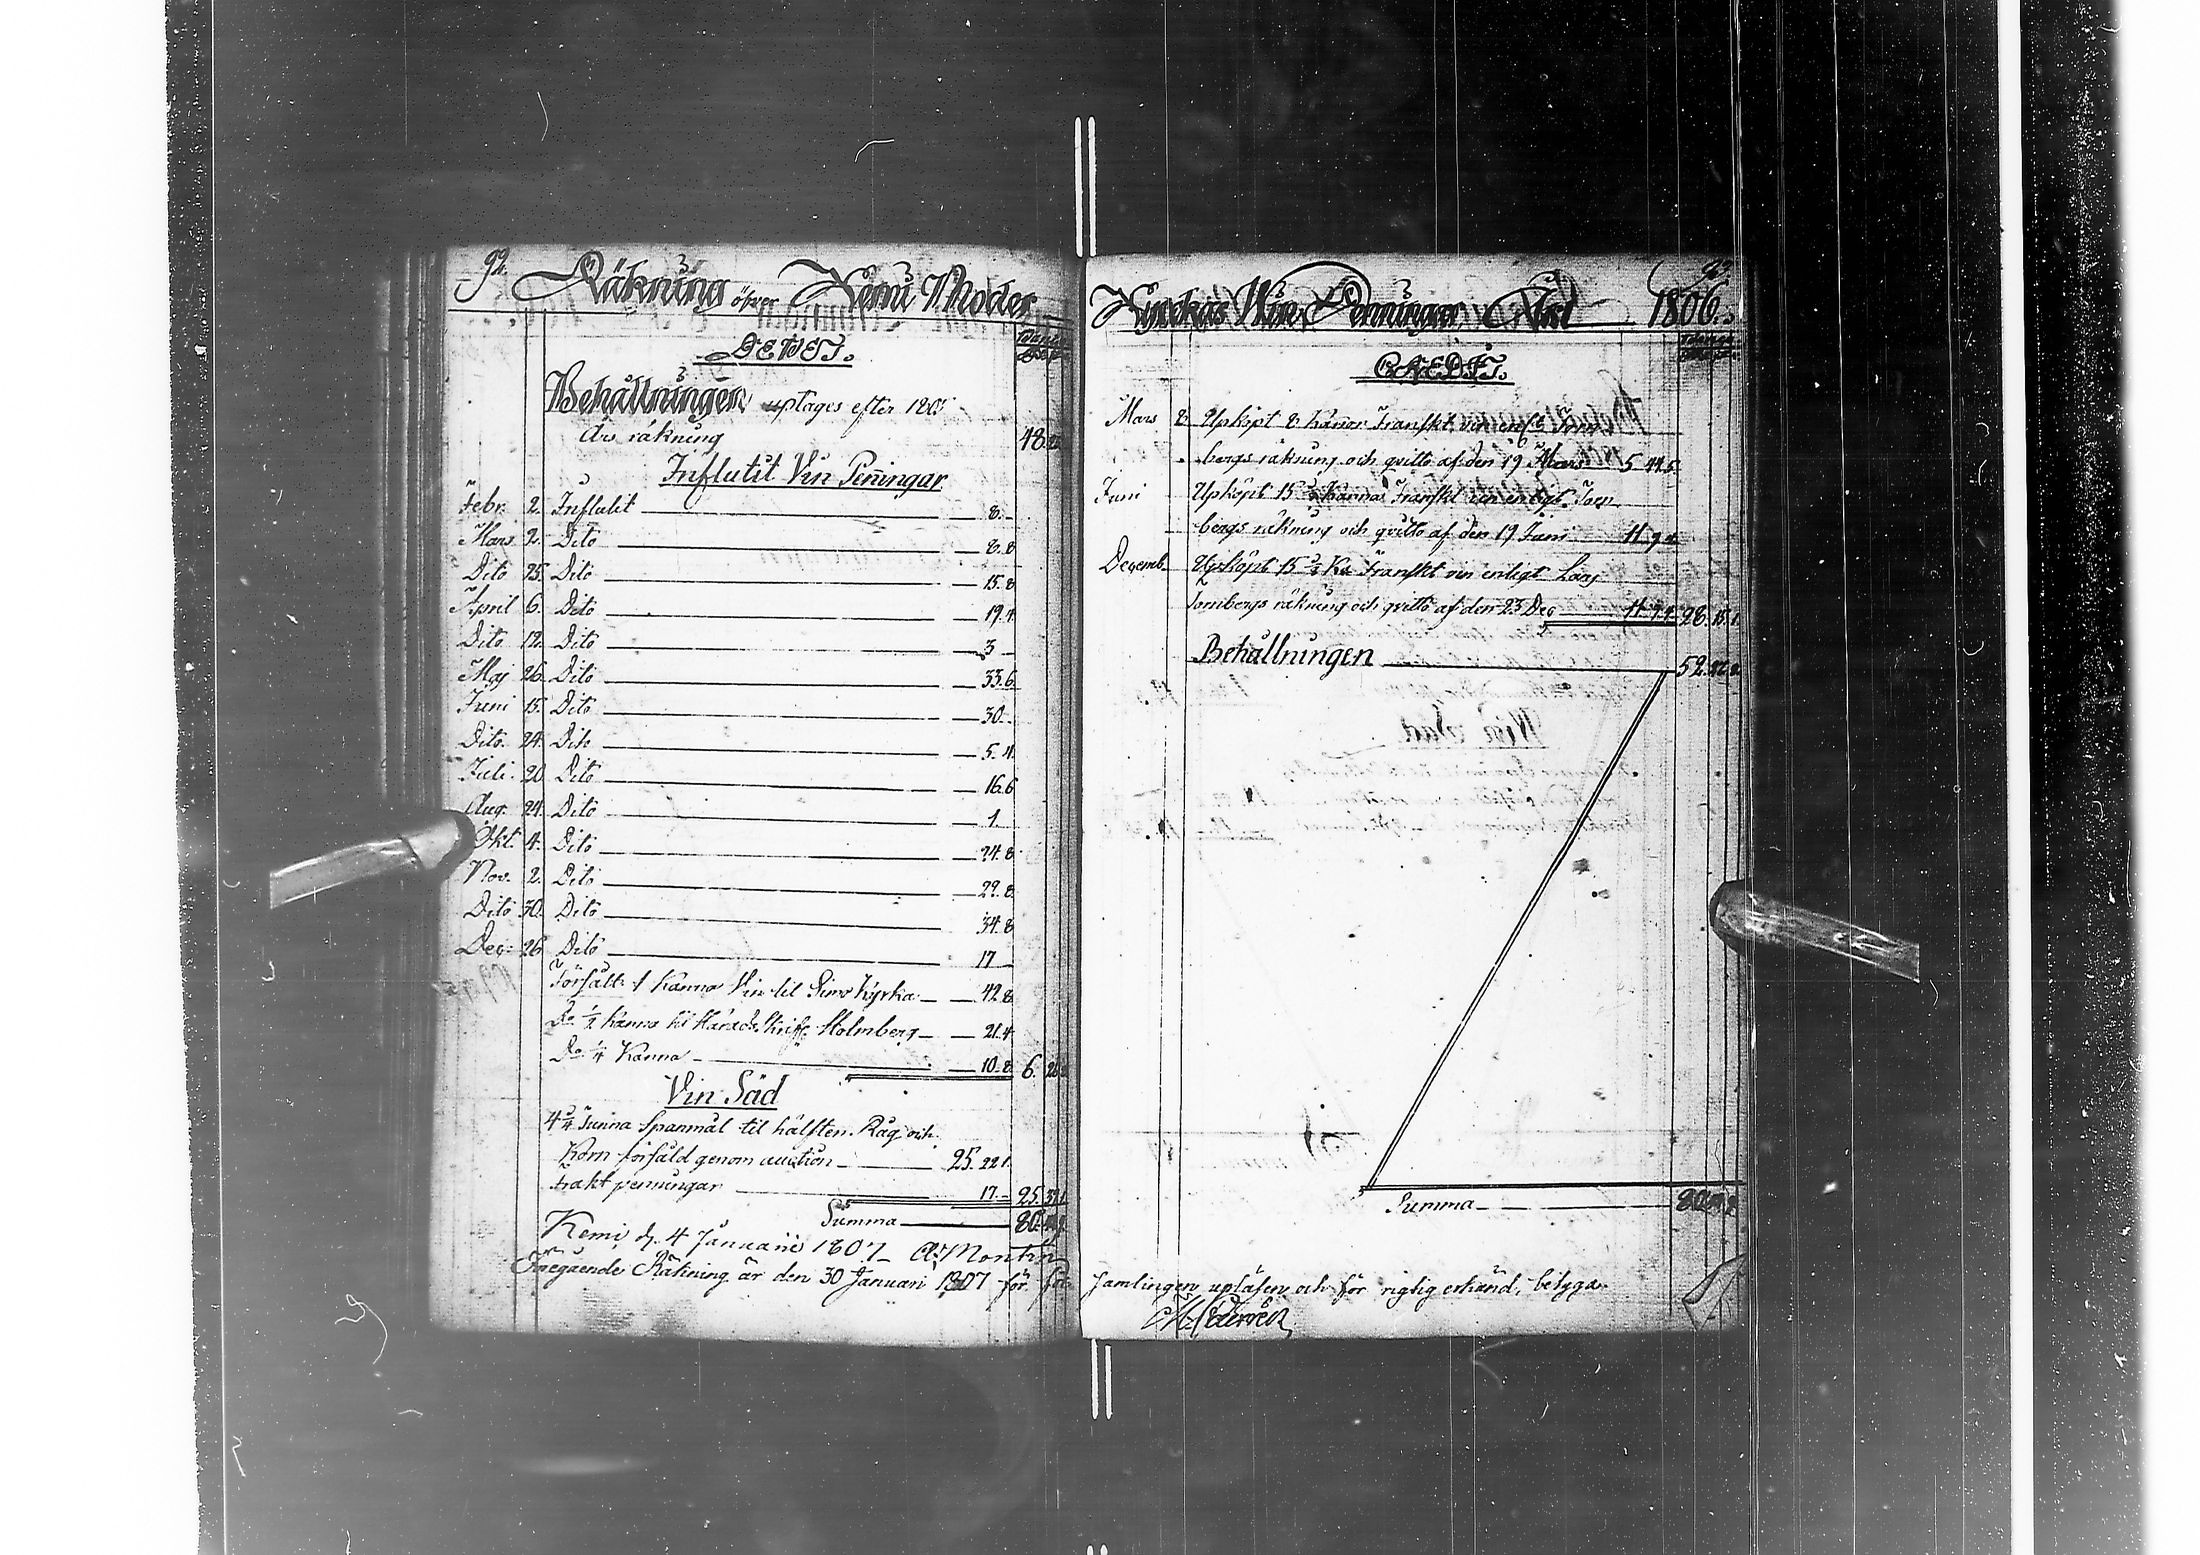 92.
Räkning öfver Kemi Moder
DEBET.
Behållningen uptages efter 1805
Års räkning 48.
Influtit Vin Peningar
Febr. 2. Influtit 8.
Mars 2. Dito 8.8
Dito 25. Dito 15.8
April 6. Dito 19.4
Dito 12. Dito 3
Maj 26. Dito 33.6
Juni 15. Dito 30.
Dito. 24. Dito 5.4
Juli. 20 Dito 16.6
Aug. 24. Dito 1.
Okt. 4. Dito 24.8
Nov. 2. Dito 29.8
Dito 30. Dito 34.8
Dec. 26 Dito 17
Försålt 1 Kanna Vin til Simo Kyrka 42.8
Do 1/2 Kanna til Härads Skrifv. Holmberg 21.4
Do 1/4 Kanna 10.8 6.
Vin Säd
Tunna Spanmål til hälften Råg och
Korn försåld genom auction 25.22.1
Frakt penningar 17. 25.
Summa 80.
Kemi d. 4 Januarii 1807
Föregående Räkning är den 30 Januari 1807 för för
93.
Kyrckas Vin Penningar År 1806.
CREDIT.
Mars 8 Upköpt 8 Kanor Franskt vin
bergs räkning och qvitto af den 19 Mars 5.44.5
Juni Upköpt 15 Kannor Franskt vin enligt Torn
bergs räkning och qvitto af den 19 Juni 11.7.4
Decemb. Upköpt 15 Ka Franskt vin enligt Lars
Tornbergs räkning och qvitto af den 23 Dec 11.7.4 28.15.1
Behållningen 52.
Summa 80.
samlingen upläsen och för rigtig erkänd, betygar